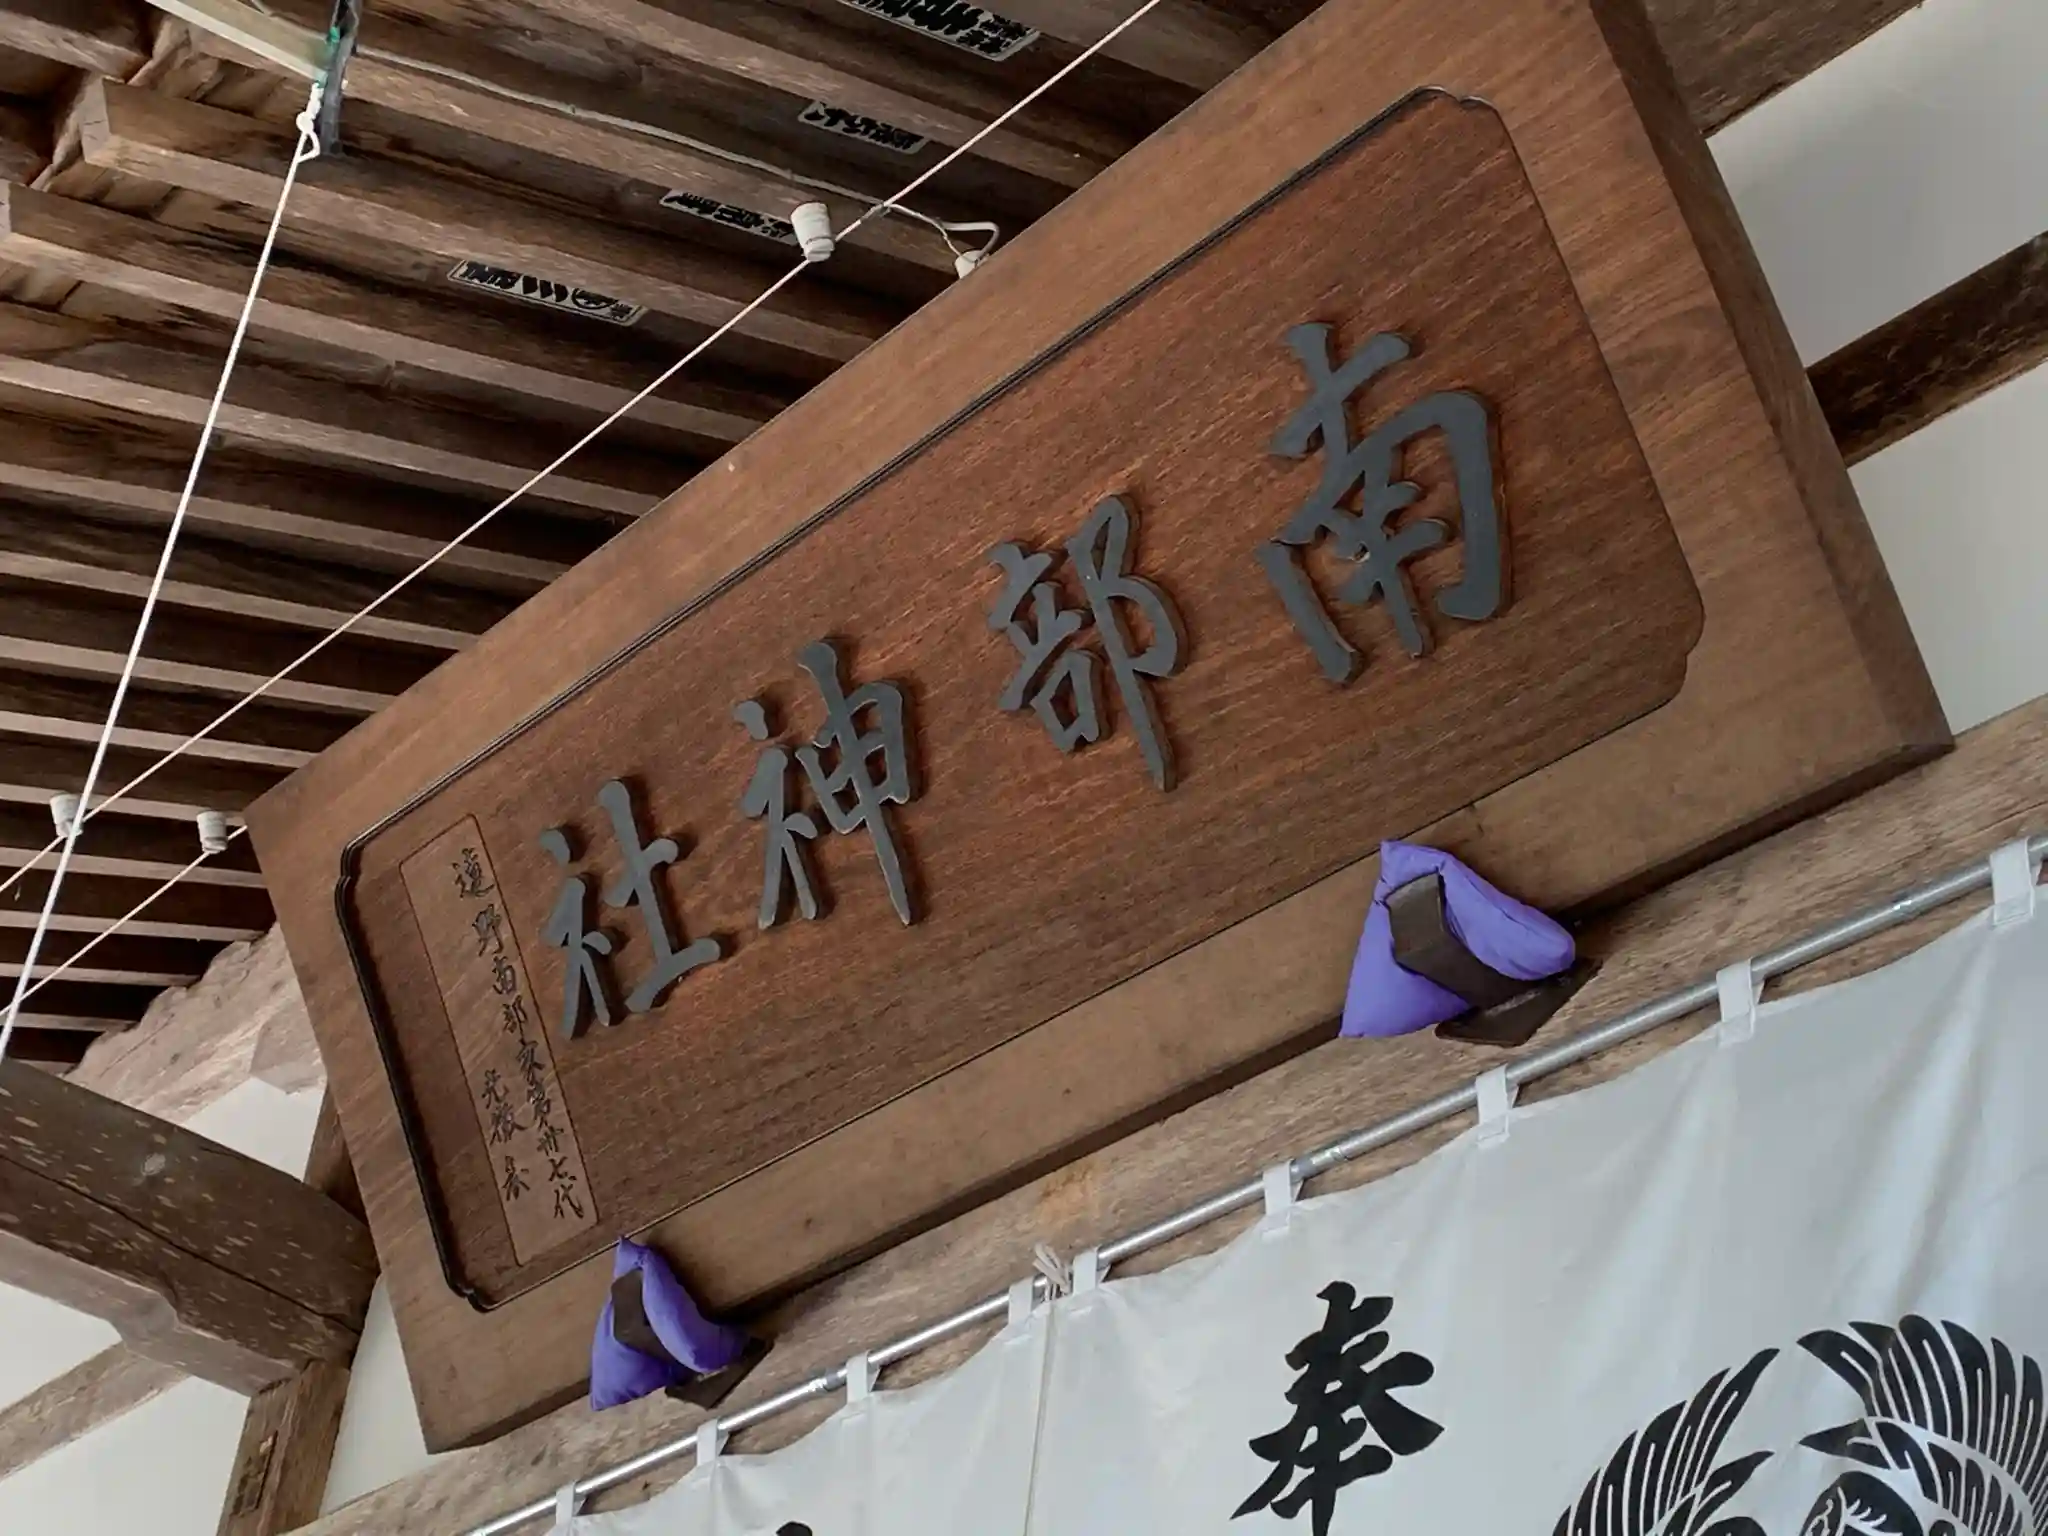 南部神社
遠野南部家第卅七代
光徹書
奉